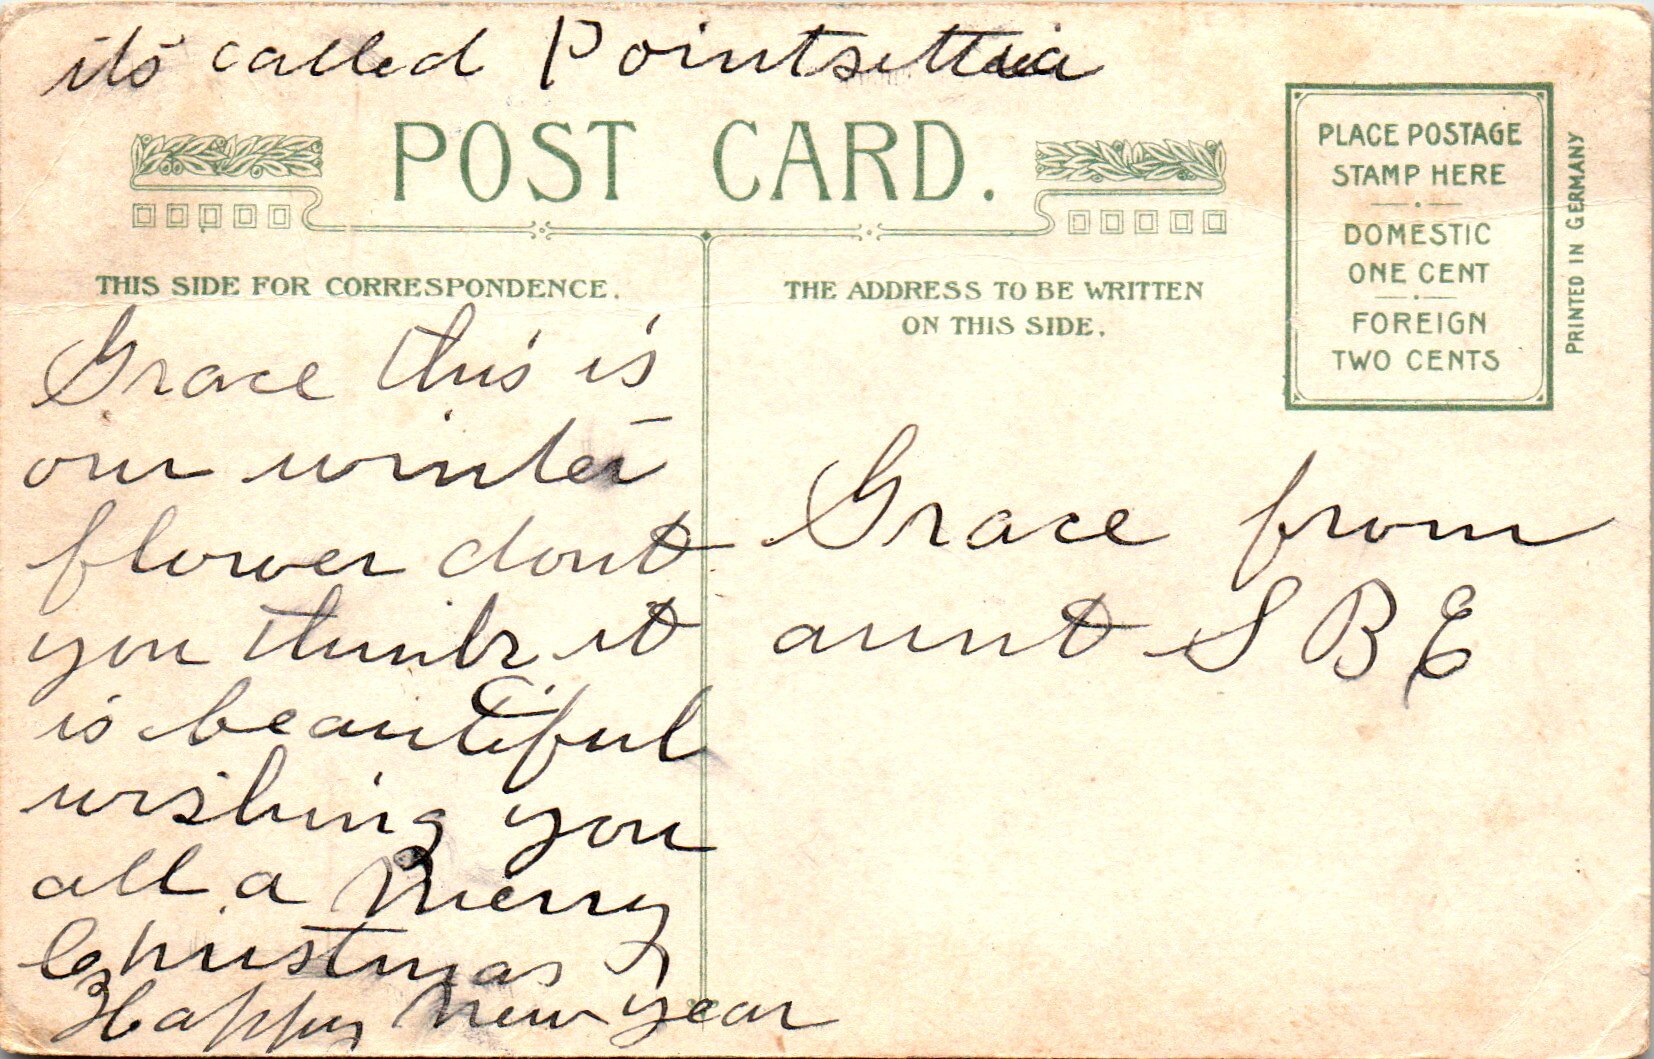 its called Pointsettia
POST CARD.
THIS SIDE FOR CORRESPONDENCE.
Grace this is
our winter
flower dont
you think it
is beautiful
wishing you
all a Merry
Christmas &
Happy New year
THE ADDRESS TO BE WRITTEN
ON THIS SIDE.
Grace from
aunt S B E
PLACE POSTAGE
STAMP HERE
DOMESTIC
ONE CENT
FOREIGN
TWO CENTS
PRINTED IN GERMANY